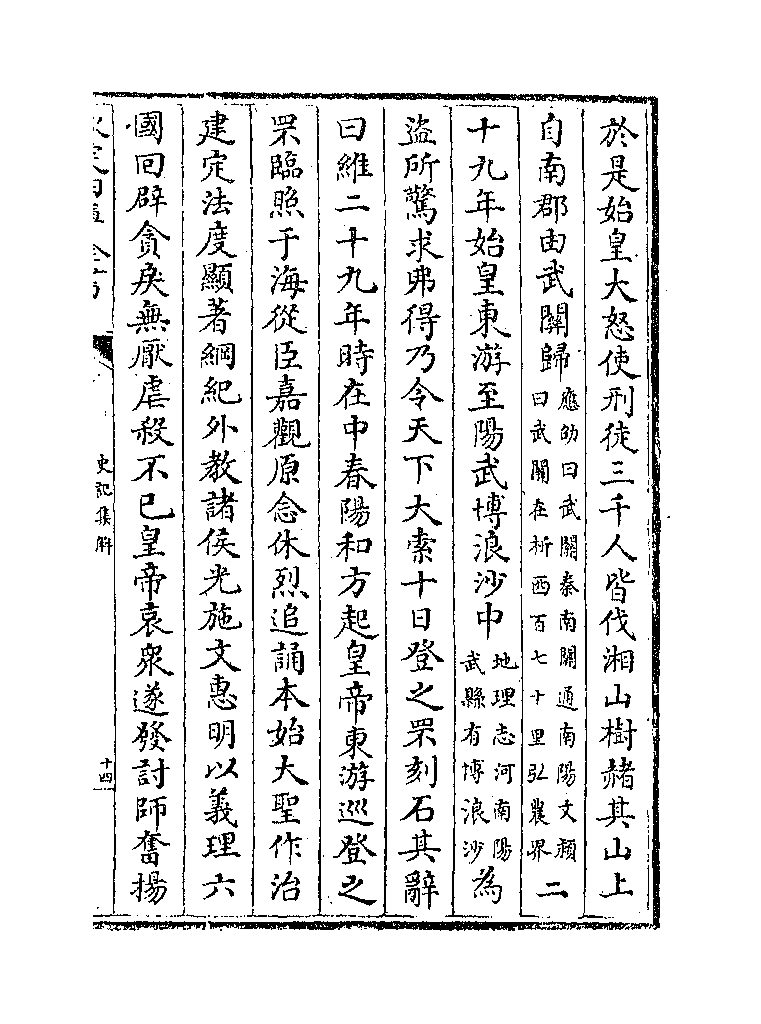 於是始皇大怒使刑徒三千人皆伐湘山樹赭其山上
自南郡由武關歸應劭曰武關秦南關通南陽文穎曰武關在析西百七十里弘農界二
十九年始皇東游至陽武博浪沙中地理志河南陽武縣有博浪沙為
盜所驚求弗得乃令天下大索十日登之罘刻石其辭
曰維二十九年時在中春陽和方起皇帝東游巡登之
罘臨照于海從臣嘉觀原念休烈追誦本始大聖作治
建定法度顯著綱紀外教諸侯光施文惠明以義理六
國回辟貪戾無厭虐殺不已皇帝哀衆遂發討師奮揚
史記集解
十四